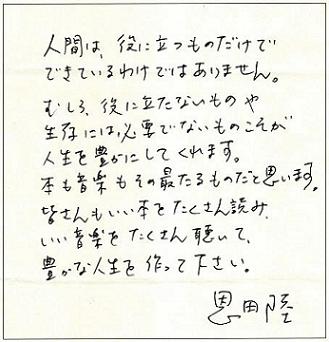 人間は、役に立つものだけで
できているわけではありません。
むしろ、役に立たないものや
生存には必要でないものこそが
人生を豊かにしてくれます。
本も音楽もその最たるものだと思います。
皆さんもいい本をたくさん読み、
いい音楽をたくさん聴いて、
豊かな人生を作って下さい。
恩田陸